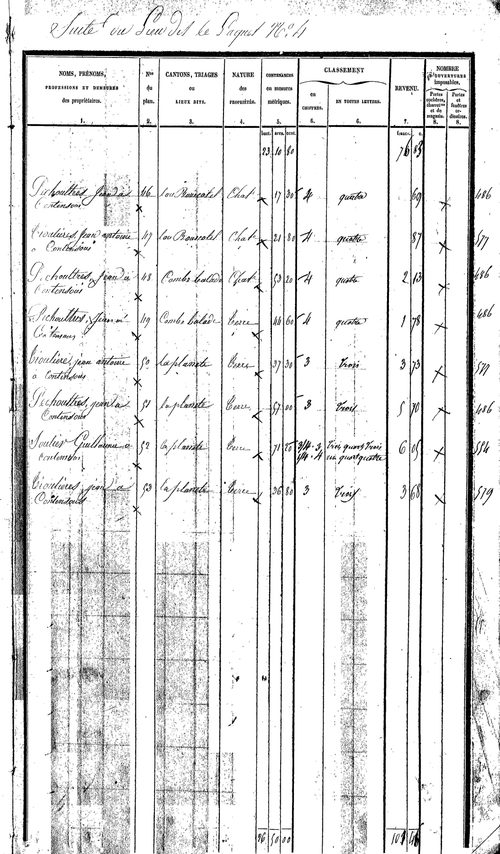 Suite du Lieu dit le Paquet N.º 4
NOMS, PRÉNOMS, PROFESSIONS ET DEMEURES des propriétaires. 1.
Nos du plan. 2.
CANTONS, TRIAGES ou LIEUX DITS. 3.
NATURE des PROPRIÉTÉS. 4.
CONTENANCES en mesures métriques. 5.
CLASSEMENT
en CHIFFRES. 6.
EN TOUTES LETTRES. 6.
REVENU. 7.
NOMBRE D'OUVERTURES imposables.
Portes cochères, charret.res et de magasin. 8.
Portes et fenêtres ordinaires. 8.
hect. ares. cent. franc. c.
23 10 80 76 83
Pichoultres, Jean à 46 Chat 17 30 4 quatre 69 486
Contensouis
jean antoine 47 Chat 21 80 4 quatre 87 577
à Contensouis
Pichoultres, Jean à 48 Combe balade Chat 53 20 4 quatre 2 13 486
Contensouis
Pichoultres, Jean à 49 Combe balade Terre 44 60 4 quatre 1 78 486
Contensouis
jean antoine 50 la planete Terre 37 30 3 trois 3 73 577
à Contensouis
Pichoultres, jean à 51 la planete Terre 57 00 3 trois 5 70 486
Contensouis
Soulier Guillaume à 52 la planete Terre 71 20 3/4 - 3 trois quarts trois 6 05 554
Contensouis 1/4 - 4 un quart quatre
jean à 53 la planete Terre 36 80 3 trois 3 68 579
Contensouis
26 50 00